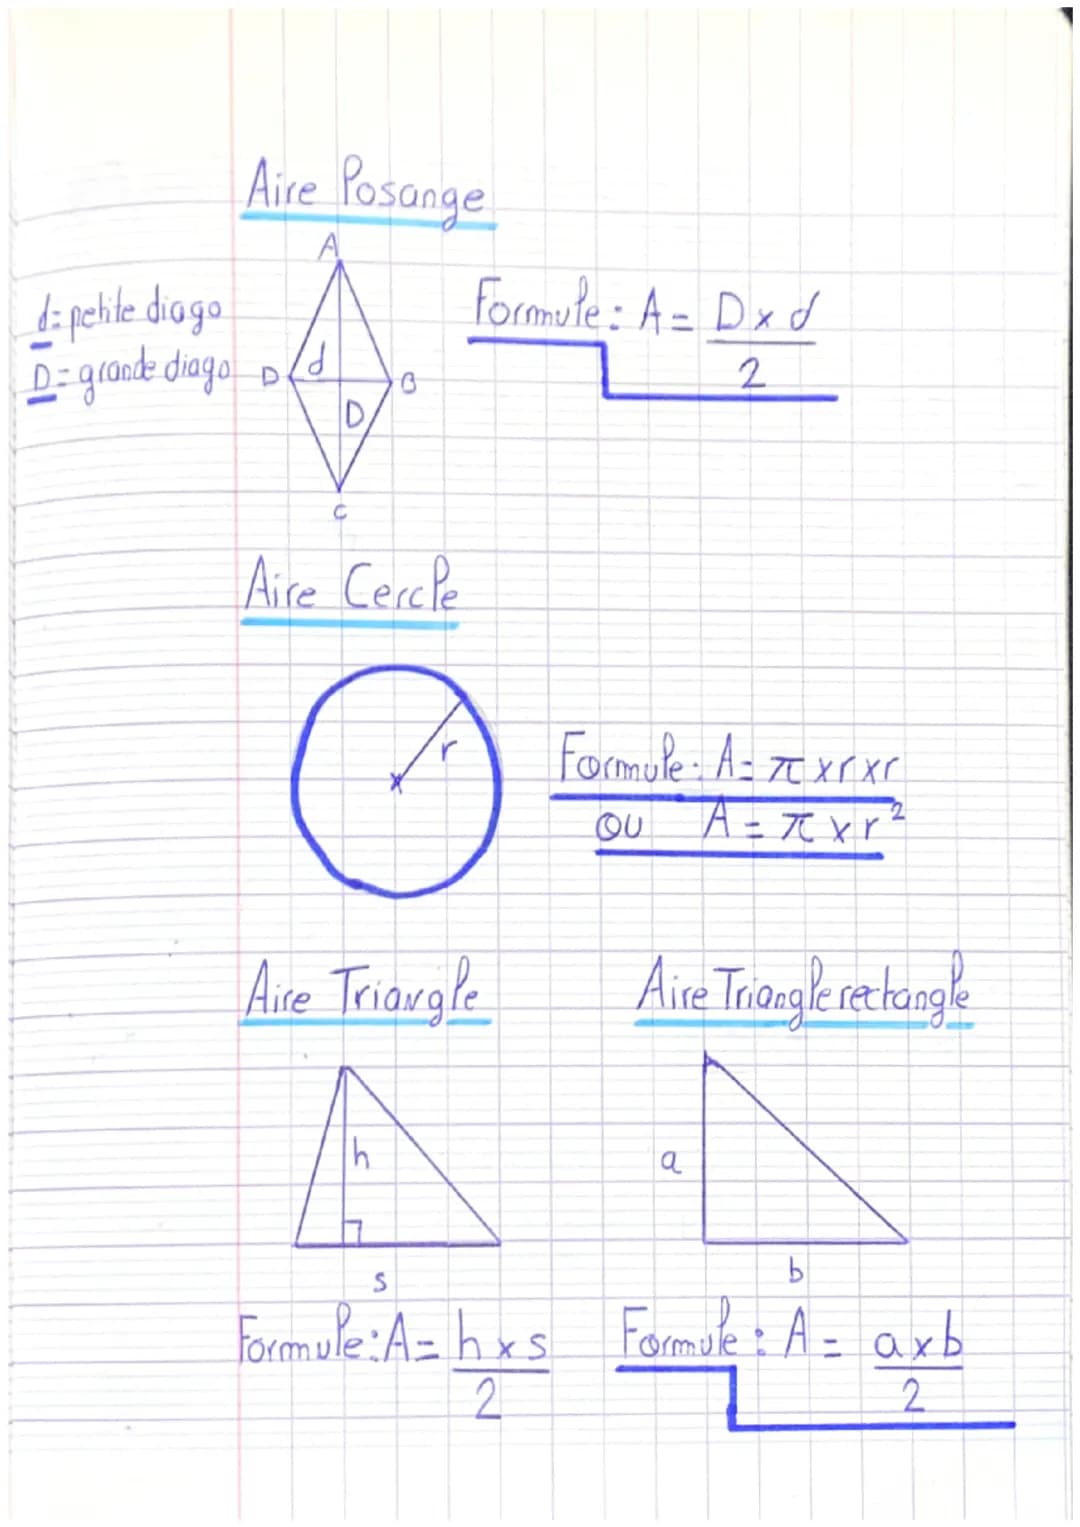 Aire Losange
A
d = petite diago
D = grande diago
D
d
B
D
C
Formule : A = D x d
2
Aire Cercle
r
Formule : A = π x r x r
ou A = π x r²
Aire Triangle
h
s
Formule : A = h x s
2
Aire Triangle rectangle
a
b
Formule : A = a x b
2